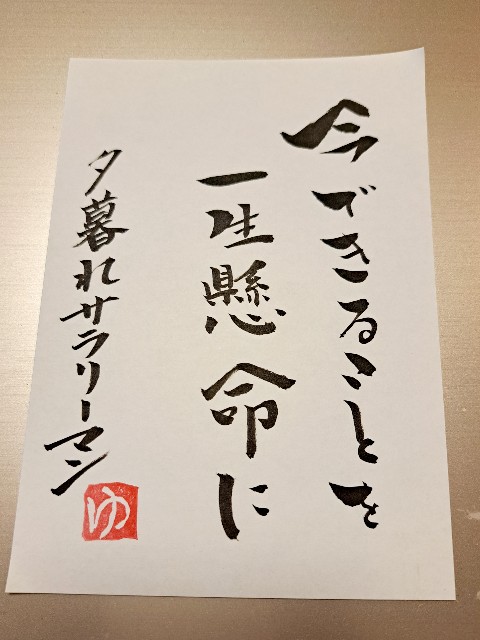 今できることを
一生懸命に
夕暮れサラリーマン
ゆ